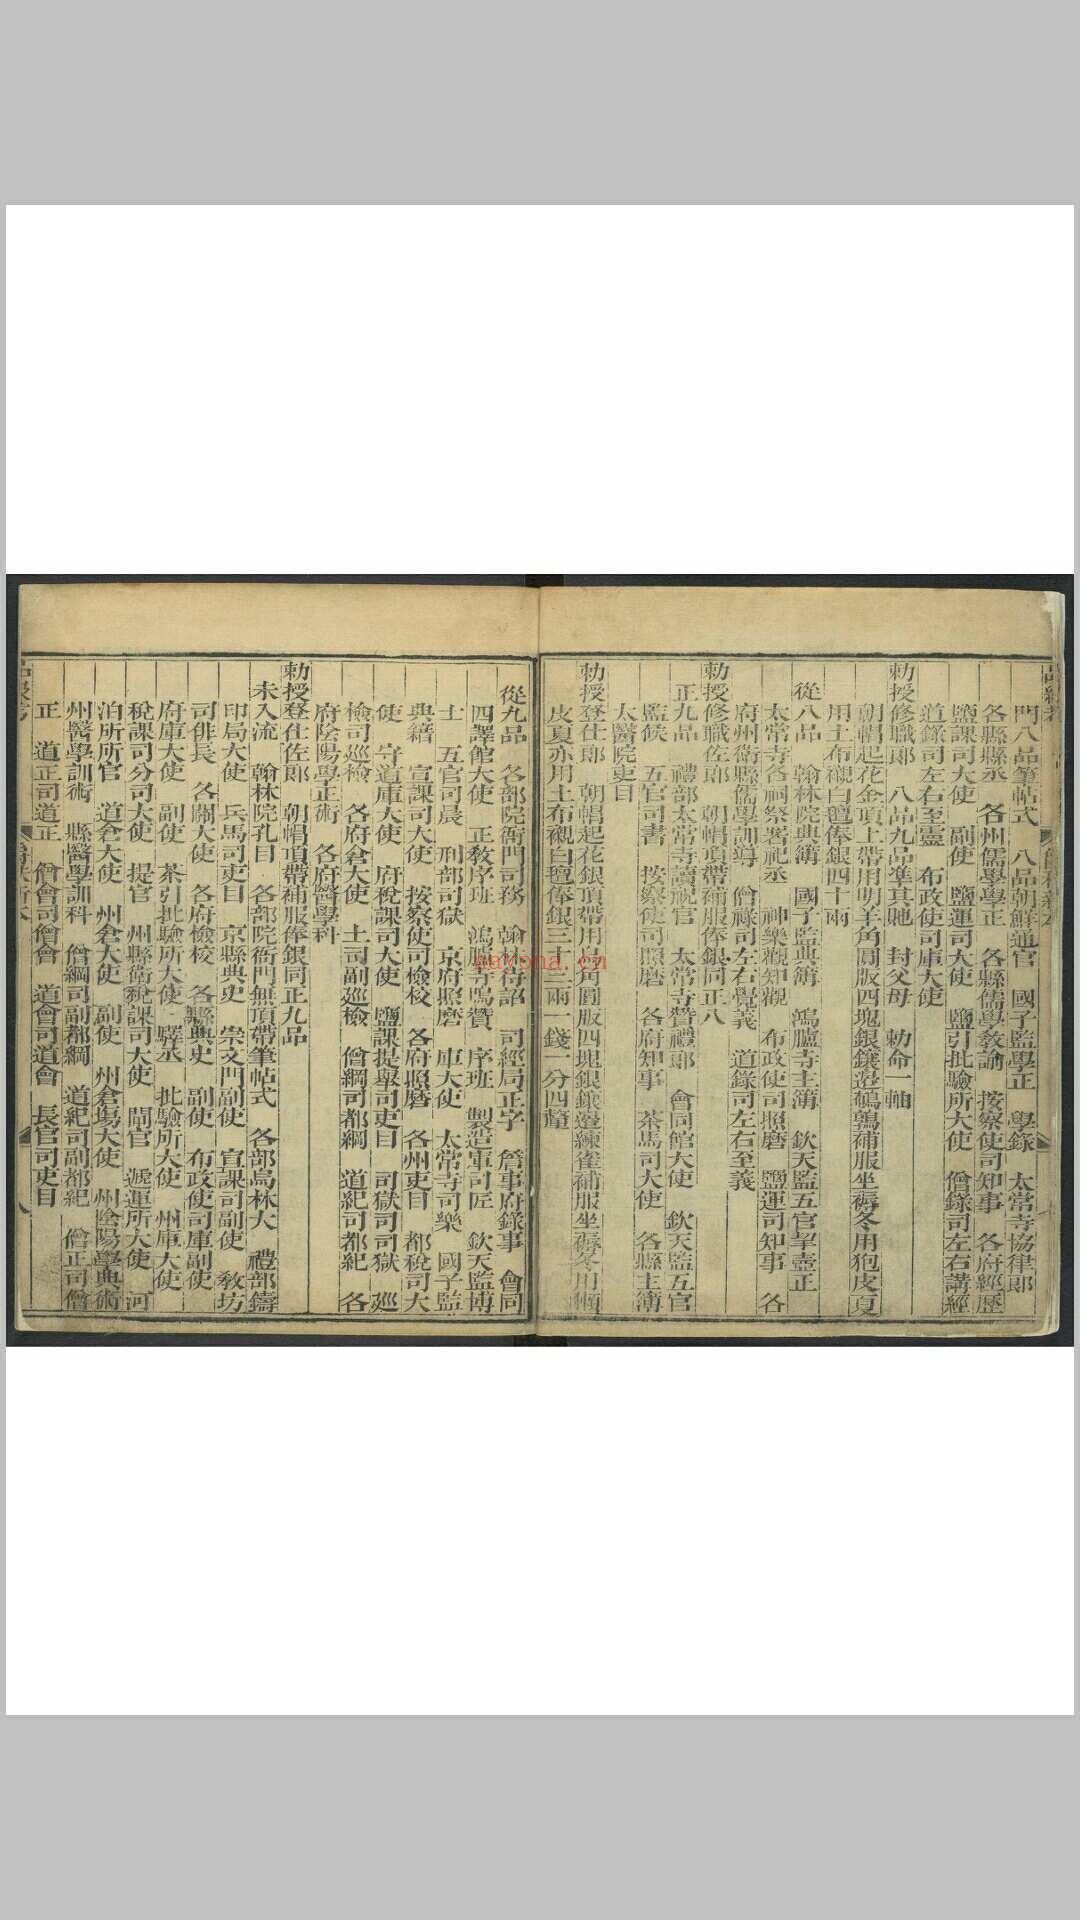 門八品筆帖式　八品朝鮮通官　國子監學正　學錄　太常寺協律郎
各縣縣丞　各州儒學學正　各縣儒學教諭　按察使司知事　各府經歷
鹽課司大使　副使　鹽運司大使　鹽引批驗所大使　僧錄司左右講經
道錄司左右至靈　布政使司庫大使
勅授修職郎　八品九品準真貤　封父母　勅命一軸
朝帽起花金頂上帶用明羊角圓版四塊銀鑲邊鵪鶉補服坐褥冬用狍皮夏
用土布襯白氊俸銀四十兩
從八品　翰林院典簿　國子監典簿　鴻臚寺主簿　欽天監五官挈壺正
太常寺各祠祭署祀丞　神樂觀知觀　布政使司照磨　鹽運司知事　各
府州衛縣儒學訓導　僧錄司左右覺義　道錄司左右至義
勅授修職佐郎　朝帽頂帶補服俸銀同正八
正九品　禮部太常寺讀祝官　太常寺贊禮郎　會同館大使　欽天監五官
監候　五官司書　按察使司照磨　各府知事　茶馬司大使　各縣主簿
太醫院吏目
勅授登仕郎　朝帽起花銀頂帶用烏角圓版四塊銀鑲邊練雀補服坐褥冬用獺
皮夏亦用土布襯白氊俸銀三十三兩一錢一分四釐
從九品　各部院衙門司務　翰林待詔　司經局正字　詹事府錄事　會同
四譯館大使　正教序班　鴻臚寺鳴贊　序班　製造軍司匠　欽天監博
士　五官司晨　刑部司獄　京府照磨　庫大使　太常寺司樂　國子監
典籍　宣課司大使　按察使司檢校　各府照磨　各州吏目　都稅司大
使　守道庫大使　府稅課司大使　鹽課提舉司吏目　司獄司司獄　巡
檢司巡檢　各府倉大使　土司副巡檢　僧綱司都綱　道紀司都紀　各
府陰陽學正術　各府醫學科
勅授登仕佐郎　朝帽頂帶補服俸銀同正九品
未入流　翰林院孔目　各部院衙門無頂帶筆帖式　各部烏林大　禮部鑄
印局大使　兵馬司吏目　京縣典史　崇文門副使　宣課司副使　教坊
司俳長　各關大使　各府檢校　各縣典史　副使　布政使司庫副使
府庫大使　副使　茶引批驗所大使　驛丞　批驗所大使　州庫大使
稅課司分司大使　提官　州縣衛稅課司大使　閘官　遞運所大使　河
泊所所官　道倉大使　州倉大使　副使　州倉場大使　州陰陽學典術
州醫學訓術　縣醫學訓科　僧綱司副都綱　道紀司副都紀　僧正司僧
正　道正司道正　僧會司僧會　道會司道會　長官司吏目
nayona.cn